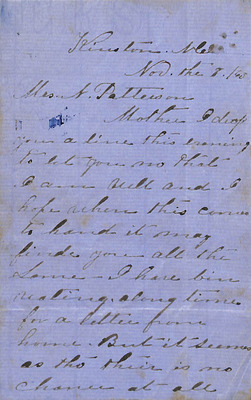 Kinston N.C.
Nov. the 8.
Mrs. A. Patterson
Mother I drop
you a line this evening
to let you no that
I am well and I
hope when this comes
to hand it may
finde you all the
same - I have bin
wating along time
for a letter from
home. But it seems
as tho their is no
chance at all